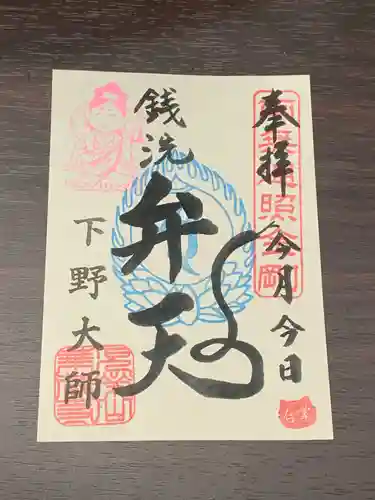 奉拝
今月今日
銭洗
弁天
下野大師